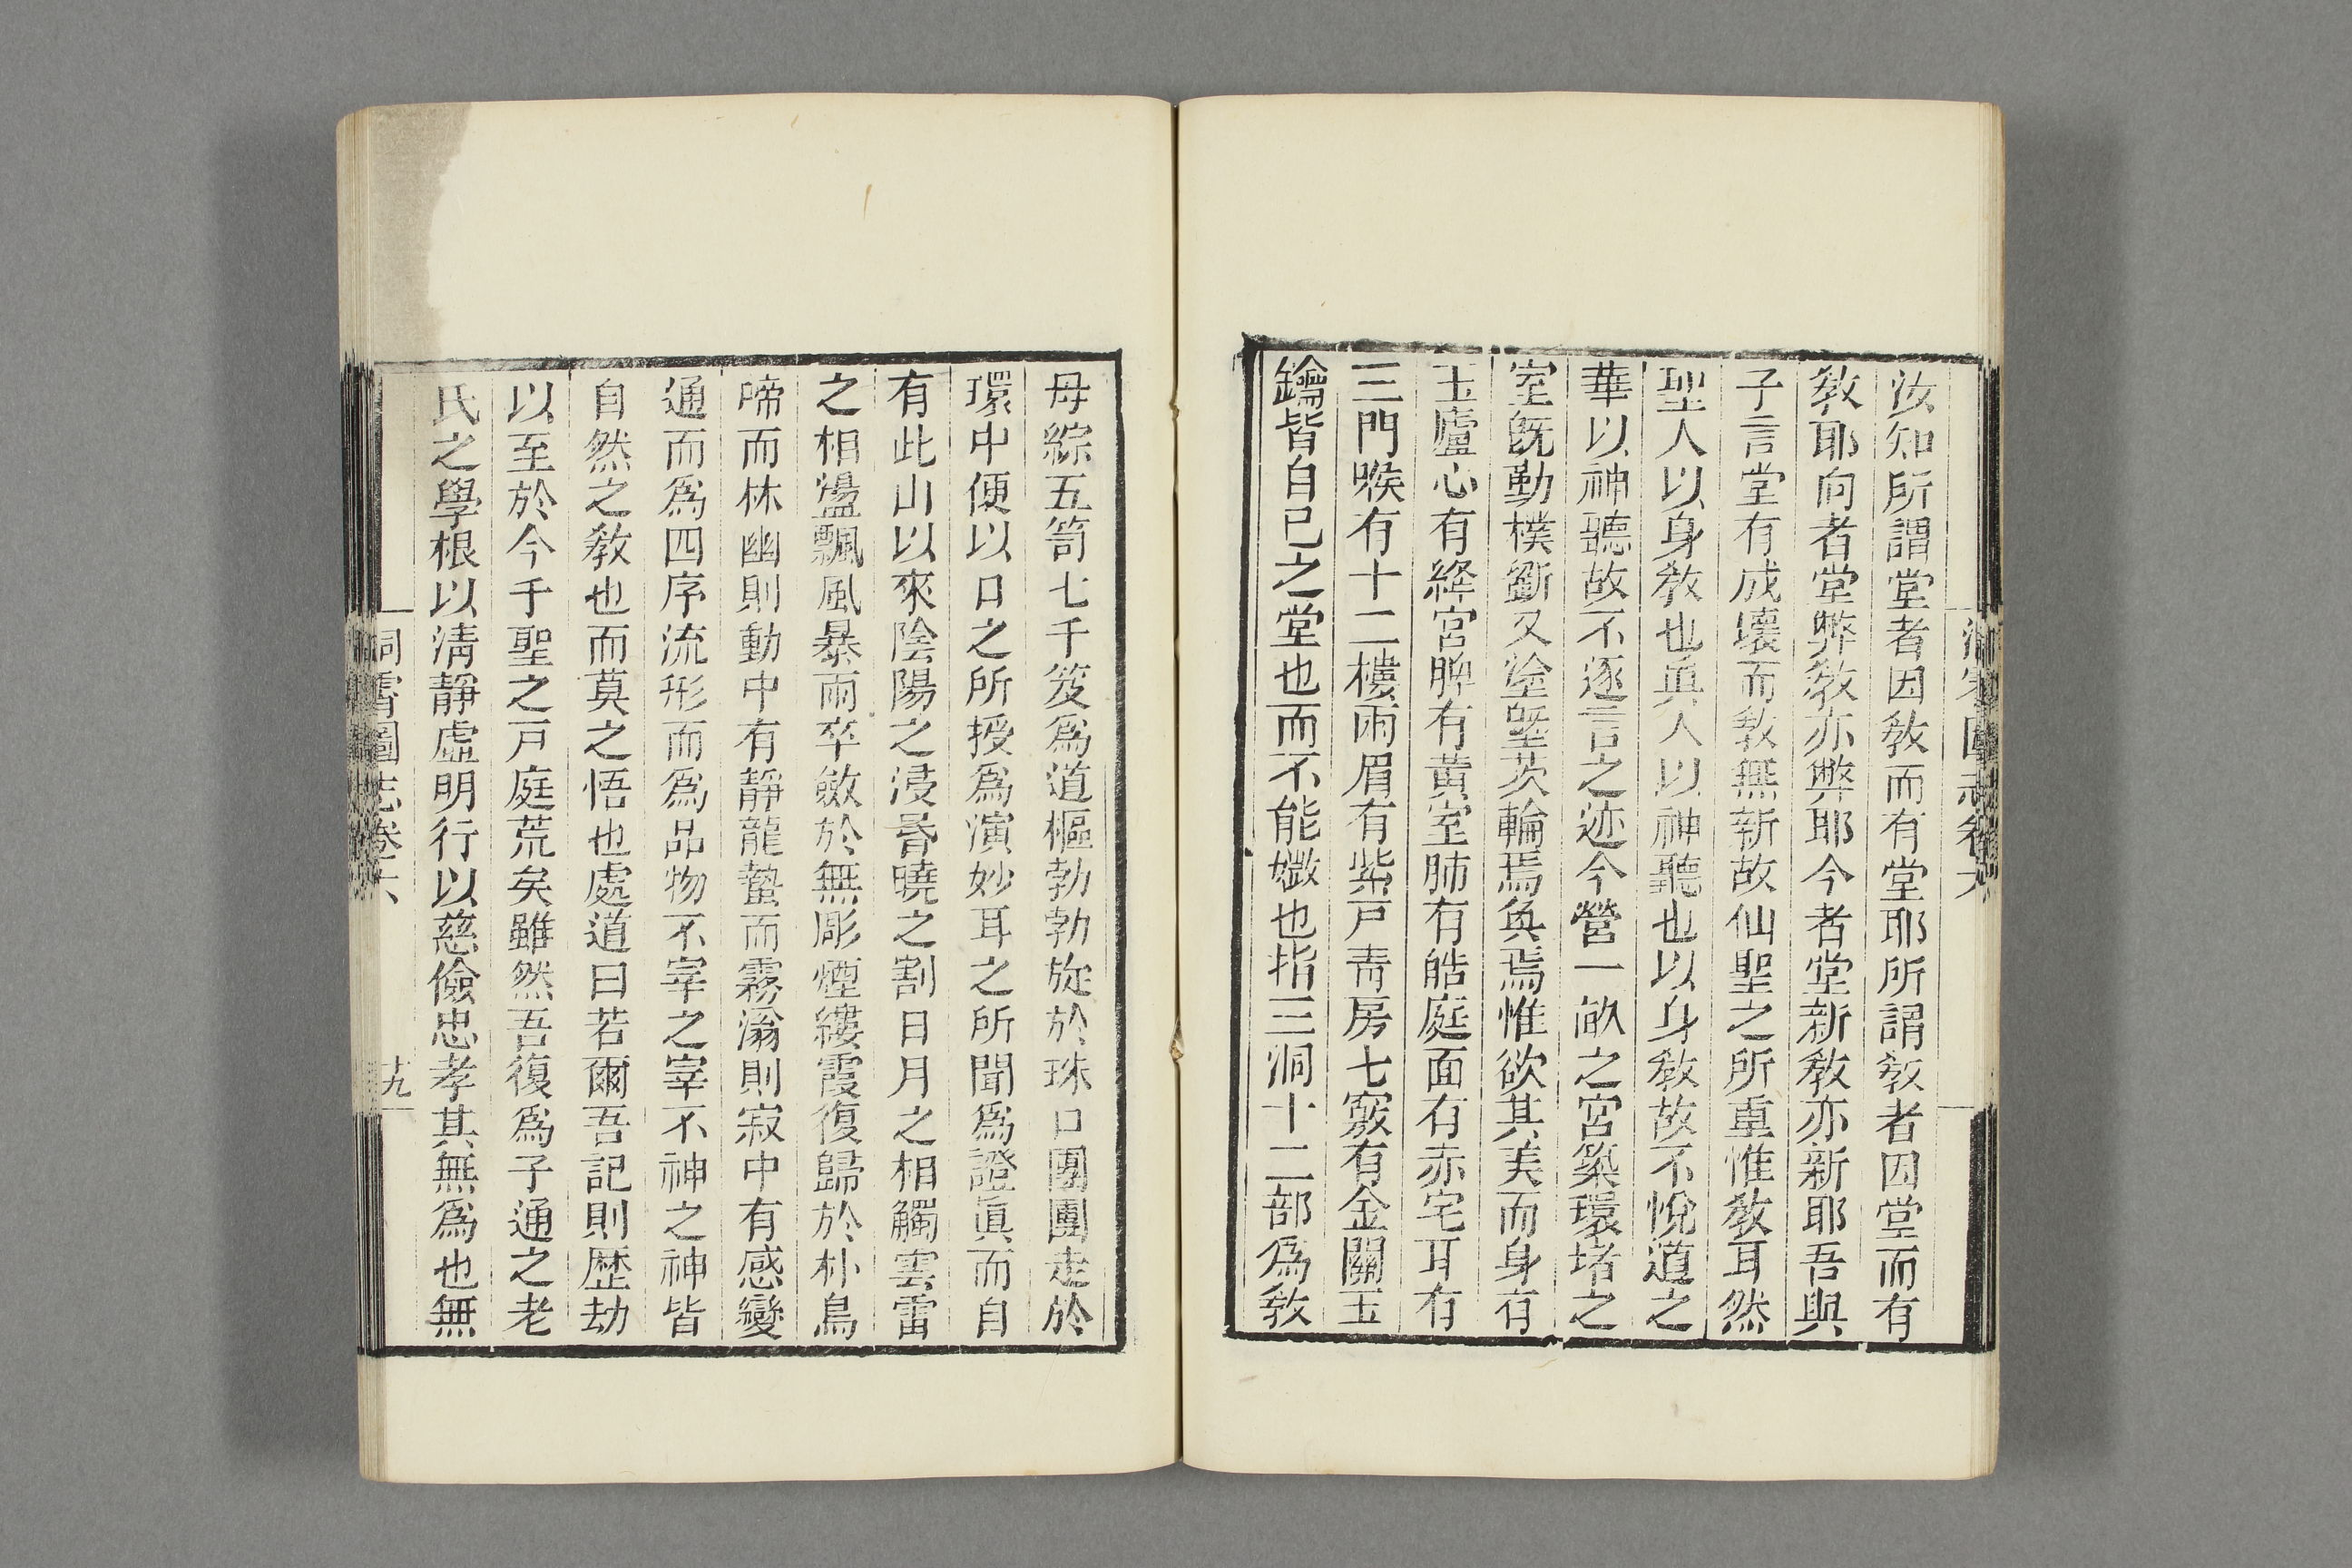 汝知所謂堂者因敎而有堂耶所謂敎者因堂而有
敎耶向者堂弊敎亦弊耶今者堂新敎亦新耶吾與
子言堂有成壞而敎無新故仙聖之所重惟敎耳然
聖人以身敎也眞人以神聽也以身敎故不悅道之
華以神聽故不逐言之迹今營一畝之宮築環堵之
室旣勤樸斲又塗塈茨輪焉奐焉惟欲其美而身有
玉廬心有絳宮脾有黃室肺有皓庭面有赤宅耳有
三門喉有十二樓兩眉有紫戸靑房七竅有金關玉
鑰皆自已之堂也而不能媺也指三洞十二部爲敎
母綜五笥七千笈爲道樞勃勃旋於珠口團團走於
環中便以口之所授爲演妙耳之所聞爲證眞而自
有此山以來陰陽之浸昬曉之割日月之相觸雲雷
之相盪飄風暴雨卒斂於無彫煙縷霞復歸於朴鳥
啼而林幽則動中有靜龍蟄而霧滃則寂中有感變
通而爲四序流形而爲品物不宰之宰不神之神皆
自然之敎也而莫之悟也處道曰若爾吾記則歴劫
以至於今千聖之戸庭荒矣雖然吾復爲子通之老
氏之學根以淸靜虛明行以慈儉忠孝其無爲也無
洞霄圖志卷六
十九